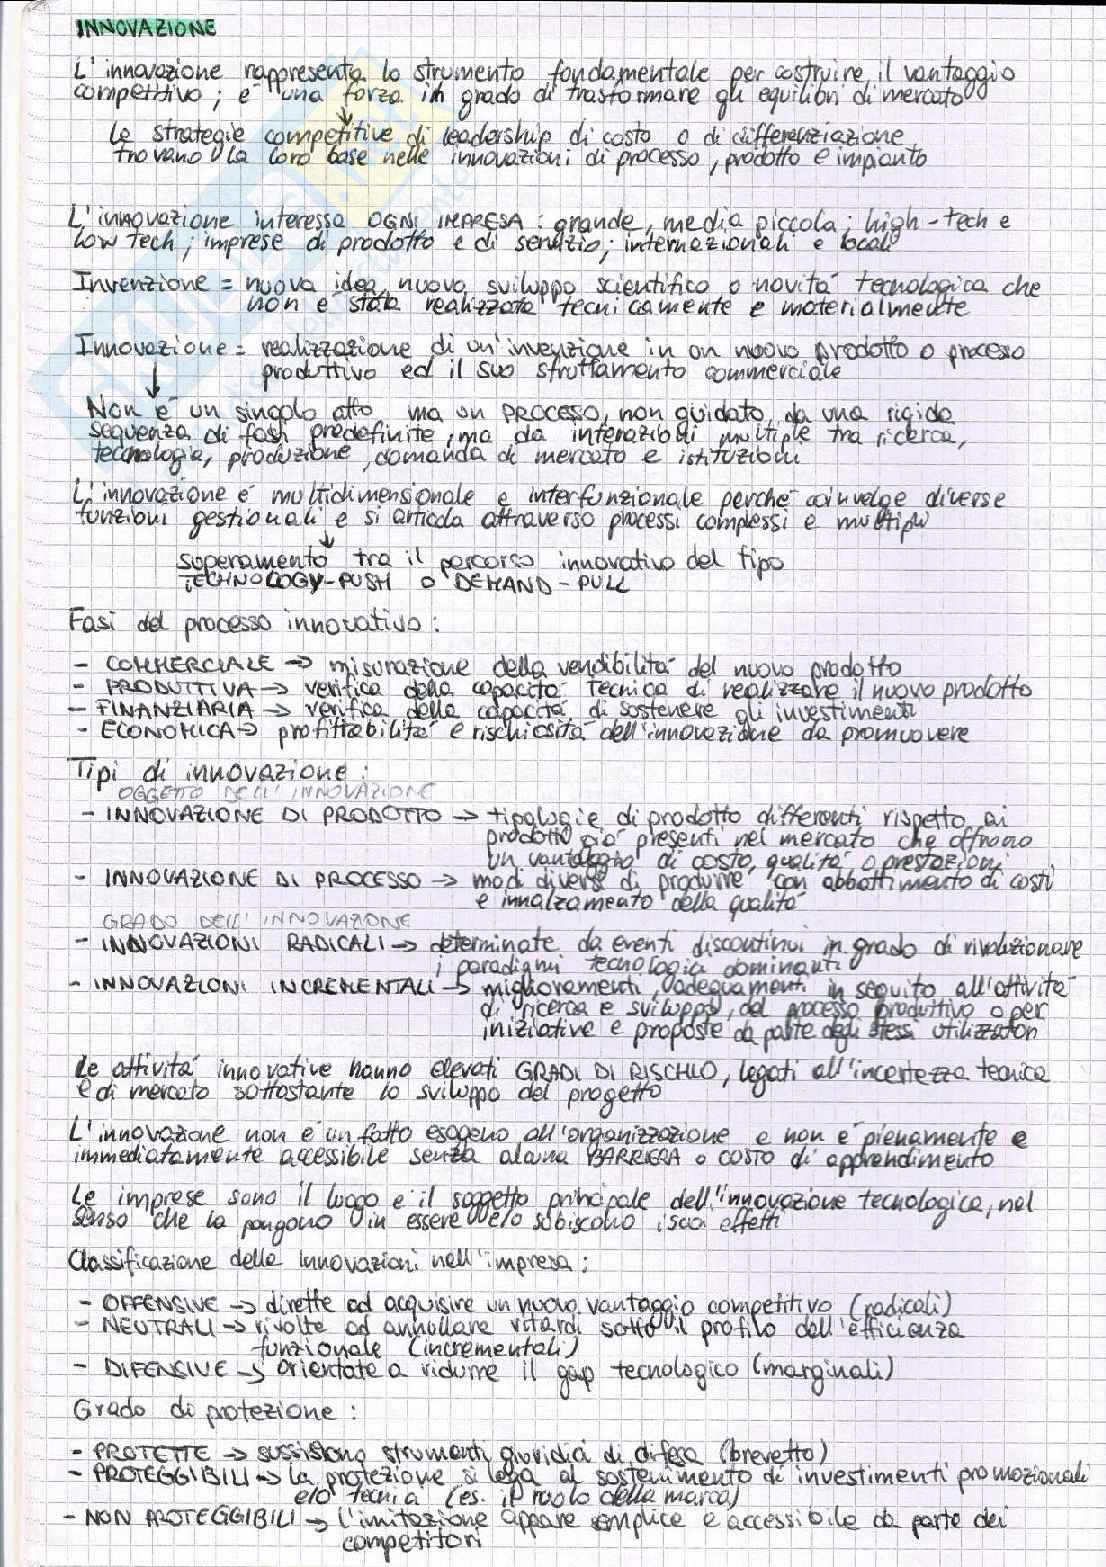 INNOVAZIONE
L'innovazione rappresenta lo strumento fondamentale per costruire il vantaggio
competitivo; e' una forza in grado di trasformare gli equilibri di mercato
↓
Le strategie competitive di leadership di costo o di differenziazione
trovano la loro base nelle innovazioni di processo, prodotto e impianto
L'innovazione interessa OGNI IMPRESA: grande, media piccola; high-tech e
low tech; imprese di prodotto e di servizio; internazionali e locali
Invenzione = nuova idea, nuovo sviluppo scientifico o novita' tecnologica che
non e' stata realizzata tecnicamente e materialmente
Innovazione = realizzazione di un'invenzione in un nuovo prodotto o processo
produttivo ed il suo sfruttamento commerciale
↓
Non e' un singolo atto, ma un PROCESSO, non guidato, da una rigida
sequenza di fasi predefinite, ma da interazioni multiple tra ricerca,
tecnologia, produzione, domanda di mercato e istituzioni
L'innovazione e' multidimensionale e interfunzionale perche' coinvolge diverse
funzioni gestionali e si articola attraverso processi complessi e multipli
↓
superamento tra il percorso innovativo del tipo
TECHNOLOGY-PUSH o DEMAND-PULL
Fasi del processo innovativo:
- COMMERCIALE → misurazione della vendibilita' del nuovo prodotto
- PRODUTTIVA → verifica della capacita' tecnica di realizzare il nuovo prodotto
- FINANZIARIA → verifica della capacita' di sostenere gli investimenti
- ECONOMICA → profittabilita' e rischiosita' dell'innovazione da promuovere
Tipi di innovazione:
OGGETTO DELL'INNOVAZIONE
- INNOVAZIONE DI PRODOTTO → tipologie di prodotto differenti rispetto ai
prodotti gia' presenti nel mercato che offrono
un vantaggio di costo, qualita' o prestazioni
- INNOVAZIONE DI PROCESSO → modi diversi di produrre con abbattimento di costi
e innalzamento della qualita'
GRADO DELL'INNOVAZIONE
- INNOVAZIONI RADICALI → determinate da eventi discontinui in grado di rivoluzionare
i paradigmi tecnologici dominanti
- INNOVAZIONI INCREMENTALI → miglioramenti, adeguamenti in seguito all'attivita'
di ricerca e sviluppo, del processo produttivo o per
iniziative e proposte da parte degli stessi utilizzatori
Le attivita' innovative hanno elevati GRADI DI RISCHIO, legati all'incertezza tecnica
e di mercato sottostante lo sviluppo del progetto
L'innovazione non e' un fatto esogeno all'organizzazione e non e' pienamente e
immediatamente accessibile senza alcuna BARRIERA o COSTO di apprendimento
Le imprese sono il luogo e il soggetto principale dell'innovazione tecnologica, nel
senso che la pongono in essere e/o subiscono i suoi effetti
Classificazione delle innovazioni nell'impresa:
- OFFENSIVE → dirette ad acquisire un nuovo vantaggio competitivo (radicali)
- NEUTRALI → rivolte ad annullare ritardi sotto il profilo dell'efficienza
funzionale (incrementali)
- DIFENSIVE → orientate a ridurre il gap tecnologico (marginali)
Grado di protezione:
- PROTETTE → sussistono strumenti giuridici di difesa (brevetto)
- PROTEGGIBILI → la protezione si lega al sostenimento di investimenti promozionali
e/o tecnici (es. il ruolo della marca)
- NON PROTEGGIBILI → l'imitazione appare semplice e accessibile da parte dei
competitori